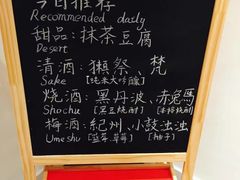 今日推荐
Recommended daily
甜品：抹茶豆腐
Desert
清酒：獭祭、梵
Sake [纯米大吟酿]
烧酒：黑丹波、赤兔馬
Shochu [黑豆烧酎] [本格烧酎]
梅酒：紀州、小鼓浊浊
Umeshu [蓝莓.草莓] [柚子]